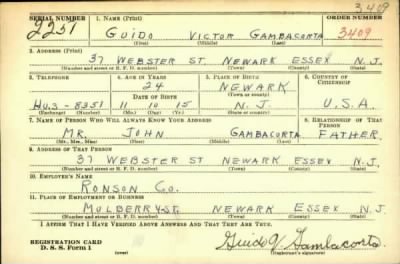 3409
SERIAL NUMBER 1. NAME (Print) ORDER NUMBER
2251 GUIDO VICTOR GAMBACORTA 3409
(First) (Middle) (Last)
2. ADDRESS (Print)
37 WEBSTER ST. NEWARK ESSEX N.J.
(Number and street or R. F. D. number) (Town) (County) (State)
3. TELEPHONE 4. AGE IN YEARS 5. PLACE OF BIRTH 6. COUNTRY OF CITIZENSHIP
24 NEWARK
DATE OF BIRTH (Town or county)
HU.3-8351 11 10 15 N.J. U.S.A.
(Exchange) (Number) (Mo.) (Day) (Yr.) (State or country)
7. NAME OF PERSON WHO WILL ALWAYS KNOW YOUR ADDRESS 8. RELATIONSHIP OF THAT PERSON
MR. JOHN GAMBACORTA FATHER
(Mr., Mrs., Miss) (First) (Middle) (Last)
9. ADDRESS OF THAT PERSON
37 WEBSTER ST NEWARK ESSEX N.J.
(Number and street or R. F. D. number) (Town) (County) (State)
10. EMPLOYER'S NAME
RONSON CO.
11. PLACE OF EMPLOYMENT OR BUSINESS
MULBERRY-ST. NEWARK ESSEX N.J.
(Number and street or R. F. D. number) (Town) (County) (State)
I AFFIRM THAT I HAVE VERIFIED ABOVE ANSWERS AND THAT THEY ARE TRUE.
REGISTRATION CARD
D. S. S. Form 1 Guido V. Gambacorta
(Registrant's signature)